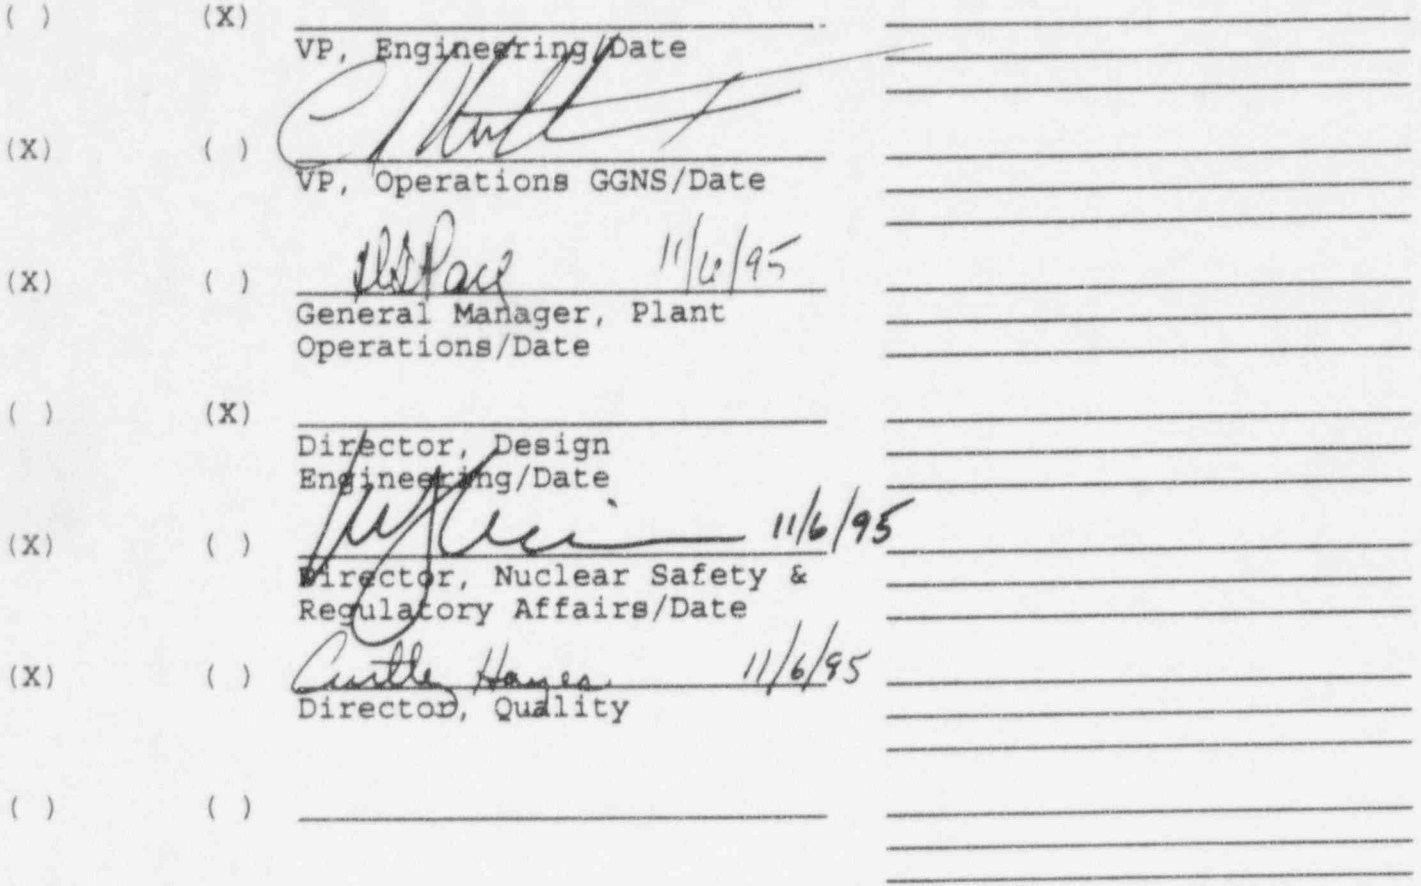 ( ) (X)
VP, Engineering/Date
(X) ( )
VP, Operations GGNS/Date
11/6/95
(X) ( )
General Manager, Plant
Operations/Date
( ) (X)
Director, Design
Engineering/Date
(X) ( ) 11/6/95
Director, Nuclear Safety &
Regulatory Affairs/Date
(X) ( ) Hayes 11/6/95
Director, Quality
( ) ( )